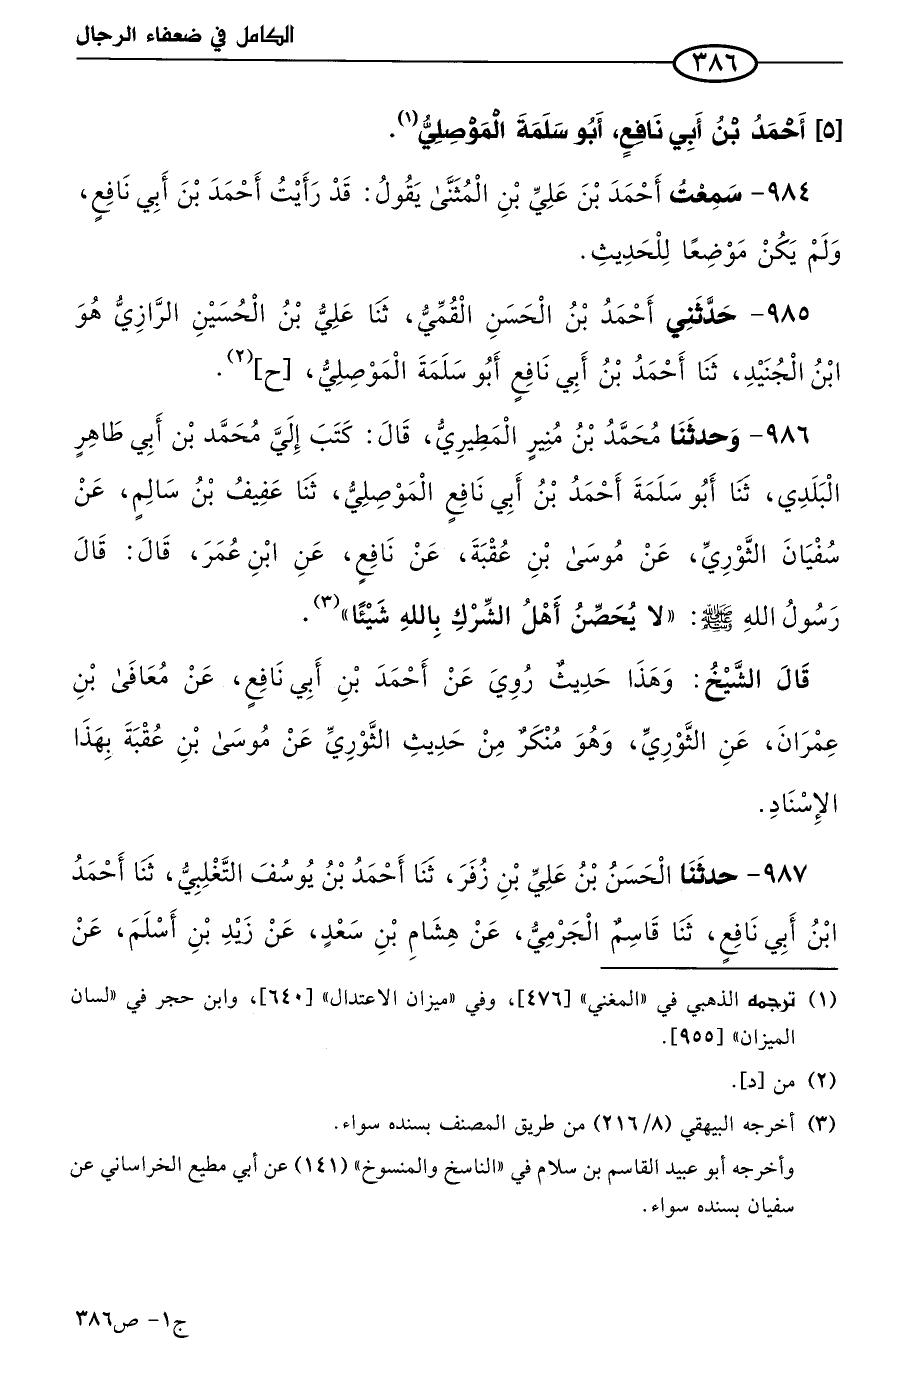 الكامل في ضعفاء الرجال
٣٨٦
[٥] أَحْمَدُ بْنُ أَبِي نَافِعٍ، أَبُو سَلَمَةَ الْمَوْصِلِيُّ(١).
٩٨٤- سَمِعْتُ أَحْمَدَ بْنَ عَلِيِّ بْنِ الْمُثَنَّىٰ يَقُولُ: قَدْ رَأَيْتُ أَحْمَدَ بْنَ أَبِي نَافِعٍ،
وَلَمْ يَكُنْ مَوْضِعًا لِلْحَدِيثِ.
٩٨٥- حَدَّثَنِي أَحْمَدُ بْنُ الْحَسَنِ الْقُمِّيُّ، ثَنَا عَلِيُّ بْنُ الْحُسَيْنِ الرَّازِيُّ هُوَ
ابْنُ الْجُنَيْدِ، ثَنَا أَحْمَدُ بْنُ أَبِي نَافِعٍ أَبُو سَلَمَةَ الْمَوْصِلِيُّ، [ح](٢).
٩٨٦- وَحدثَنَا مُحَمَّدُ بْنُ مُنِيرٍ الْمَطِيرِيُّ، قَالَ: كَتَبَ إِلَيَّ مُحَمَّد بْن أَبِي طَاهِرٍ
الْبَلَدِي، ثَنَا أَبُو سَلَمَةَ أَحْمَدُ بْنُ أَبِي نَافِعٍ الْمَوْصِلِيُّ، ثَنَا عَفِيفُ بْنُ سَالِمٍ، عَنْ
سُفْيَانَ الثَّوْرِيِّ، عَنْ مُوسَىٰ بْنِ عُقْبَةَ، عَنْ نَافِعٍ، عَنِ ابْنِ عُمَرَ، قَالَ: قَالَ
رَسُولُ اللهِ ﷺ: «لا يُحَصِّنُ أَهْلُ الشِّرْكِ بِاللهِ شَيْئًا»(٣).
قَالَ الشَّيْخُ: وَهَذَا حَدِيثٌ رُوِيَ عَنْ أَحْمَدَ بْنِ أَبِي نَافِعٍ، عَنْ مُعَافَىٰ بْنِ
عِمْرَانَ، عَنِ الثَّوْرِيِّ، وَهُوَ مُنْكَرٌ مِنْ حَدِيثِ الثَّوْرِيِّ عَنْ مُوسَىٰ بْنِ عُقْبَةَ بِهَذَا
الإِسْنَادِ.
٩٨٧- حدثَنَا الْحَسَنُ بْنُ عَلِيِّ بْنِ زُفَرَ، ثَنَا أَحْمَدُ بْنُ يُوسُفَ التَّغْلِبِيُّ، ثَنَا أَحْمَدُ
ابْنُ أَبِي نَافِعٍ، ثَنَا قَاسِمٌ الْجَرْمِيُّ، عَنْ هِشَامِ بْنِ سَعْدٍ، عَنْ زَيْدِ بْنِ أَسْلَمَ، عَنْ
(١) ترجمه الذهبي في «المغني» [٤٧٦]، وفي «ميزان الاعتدال» [٦٤٠]، وابن حجر في «لسان
الميزان» [٩٥٥].
(٢) من [د].
(٣) أخرجه البيهقي (٢١٦/٨) من طريق المصنف بسنده سواء.
وأخرجه أبو عبيد القاسم بن سلام في «الناسخ والمنسوخ» (١٤١) عن أبي مطيع الخراساني عن
سفيان بسنده سواء.
ج١- ص٣٨٦